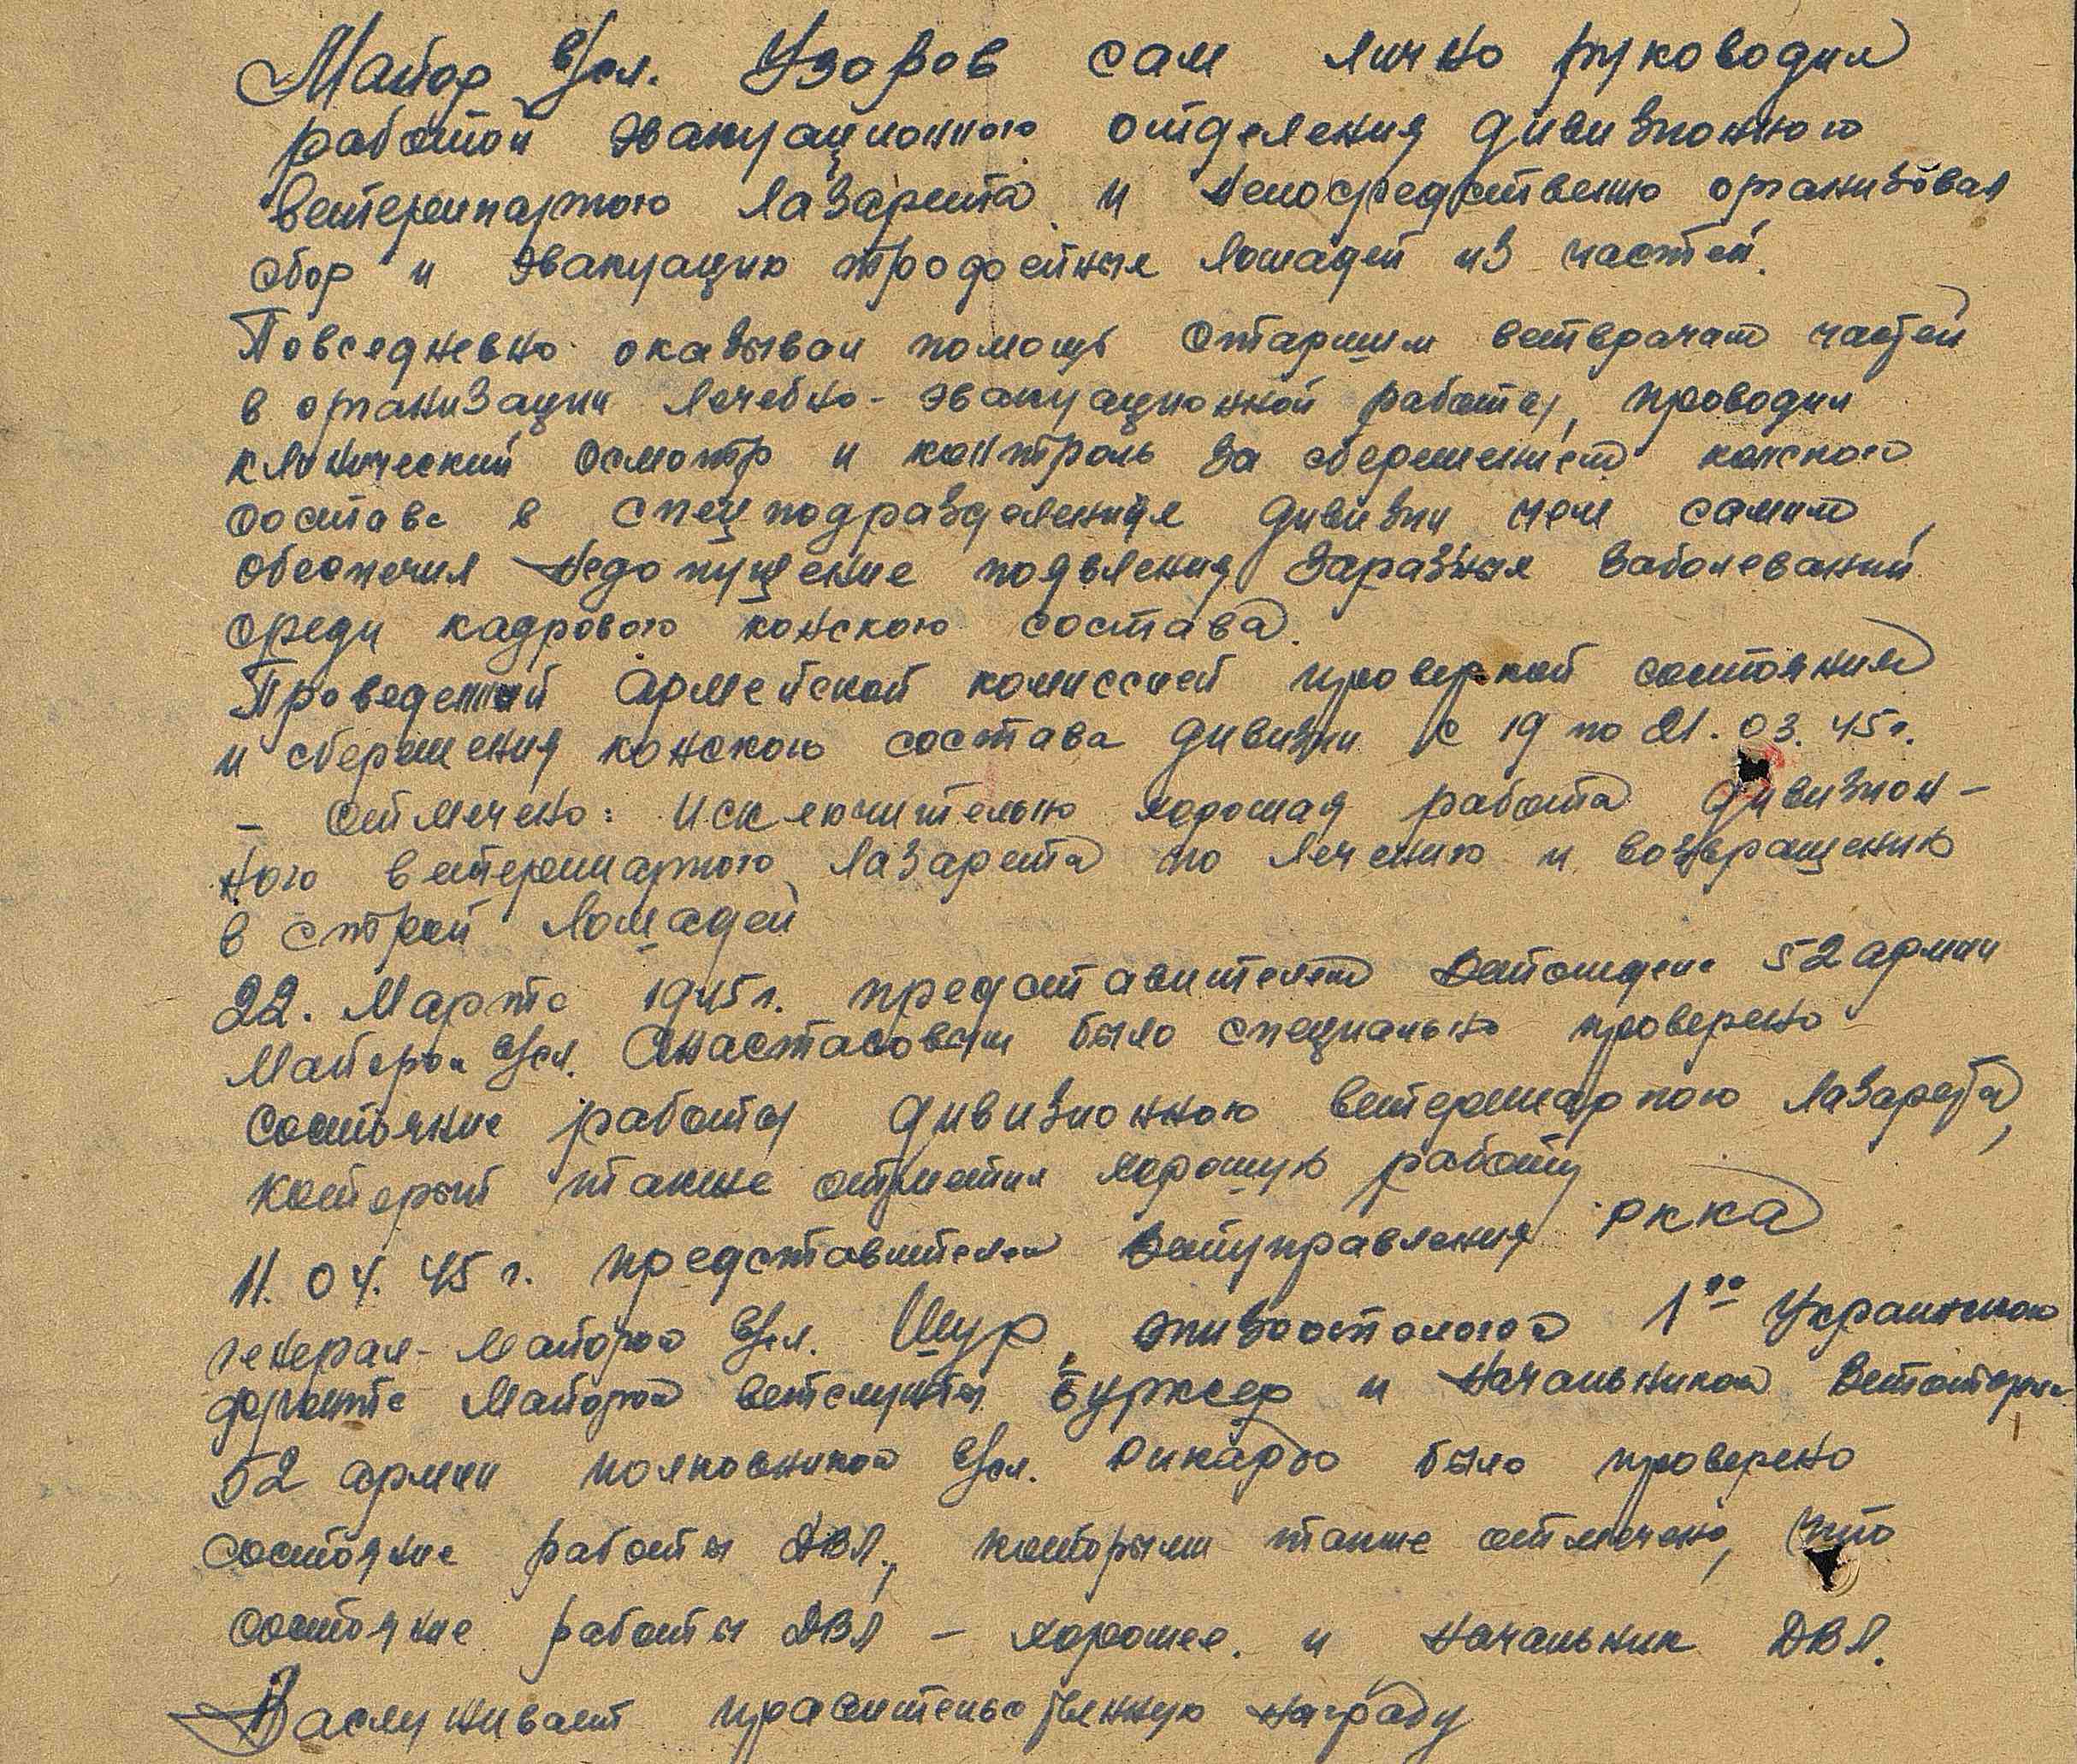 Майор в/сл. Узоров сам лично руководил
работой эвакуационного отделения дивизионного
ветеринарного лазарета и непосредственно организовал
сбор и эвакуацию трофейных лошадей из частей.
Повседневно оказывал помощь старшим ветврачам частей
в организации лечебно-эвакуационной работы, проводил
клинический осмотр и контроль за сбережением конского
состава в спецподразделениях дивизии чем самим
обеспечил недопущение появления заразных заболеваний
среди кадрового конского состава.
Проведенной армейской комиссией проверкой состояния
и сбережения конского состава дивизии с 19 по 21.03.45г.
- отмечено: исключительно хорошая работа дивизион-
ного ветеринарного лазарета по лечению и возвращению
в строй лошадей
22. Марта 1945г. представителем ветотдела 52 армии
Майором в/сл. Анастасовым было специально проверено
состояние работы дивизионного ветеринарного лазарета,
который также отметил хорошую работу
11.04.45г. представителем Ветуправления РККА
генерал-майором в/сл. Шур, эпизоотологом 1го Украинского
фронта Майором ветслужбы Бурксер и начальником
52 армии полковником в/сл. Рикардо было проверено
состояние работы ДВЛ, которыми также отмечено, что
состояние работы ДВЛ - хорошее. и начальник ДВЛ.
Заслуживает правительственную награду